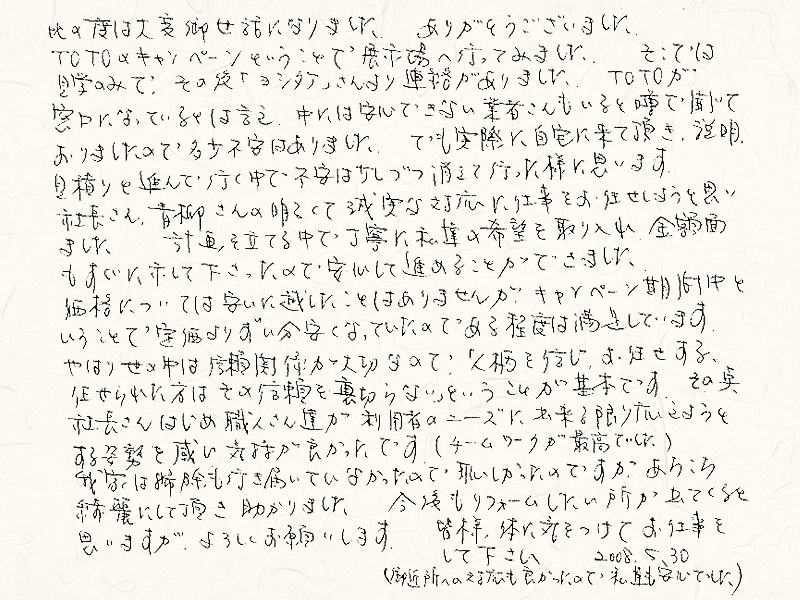 此の度は大変御世話になりました。 ありがとうございました。
TOTOのキャンペーンということで展示場へ行ってみました。 そこでは
見学のみで、その後「ヨシダ」さんより連絡がありました。 TOTOが
窓口になっているとは言え、中には安心できない業者さんもいると噂で聞いて
おりましたので多少不安はありました。 でも実際に自宅に来て頂き、説明、
見積りと進んで行く中で、不安は少しづつ消えて行った様に思います。
社長さん、青柳さんの明るくて誠実な対応に仕事をお任せしようと思い
ました。 計画を立てる中で丁寧に私達の希望を取り入れ、金額面
もすぐに示して下さったので安心して進めることができました。
価格については安いに越したことはありませんが、キャンペーン期間中と
いうことで定価よりずい分安くなっていたので、ある程度は満足しています。
やはり世の中は信頼関係が大切なので、「人柄を信じ、お任せする、
任せられた方はその信頼を裏切らない」ということが基本です。その点
社長さんはじめ職人さん達が利用者のニーズに出来る限り応えようと
する姿勢を感じ気持が良かったです(チームワークが最高でした)
我家は掃除も行き届いていなかったので恥しかったのですが、あちこち
綺麗にして頂き助かりました。 今後もリフォームしたい所が出てくると
思いますが、よろしくお願いします。 皆様、体に気をつけてお仕事を
して下さい。 2008.5.30
(御近所への対応も良かったので、私達も安心でした)